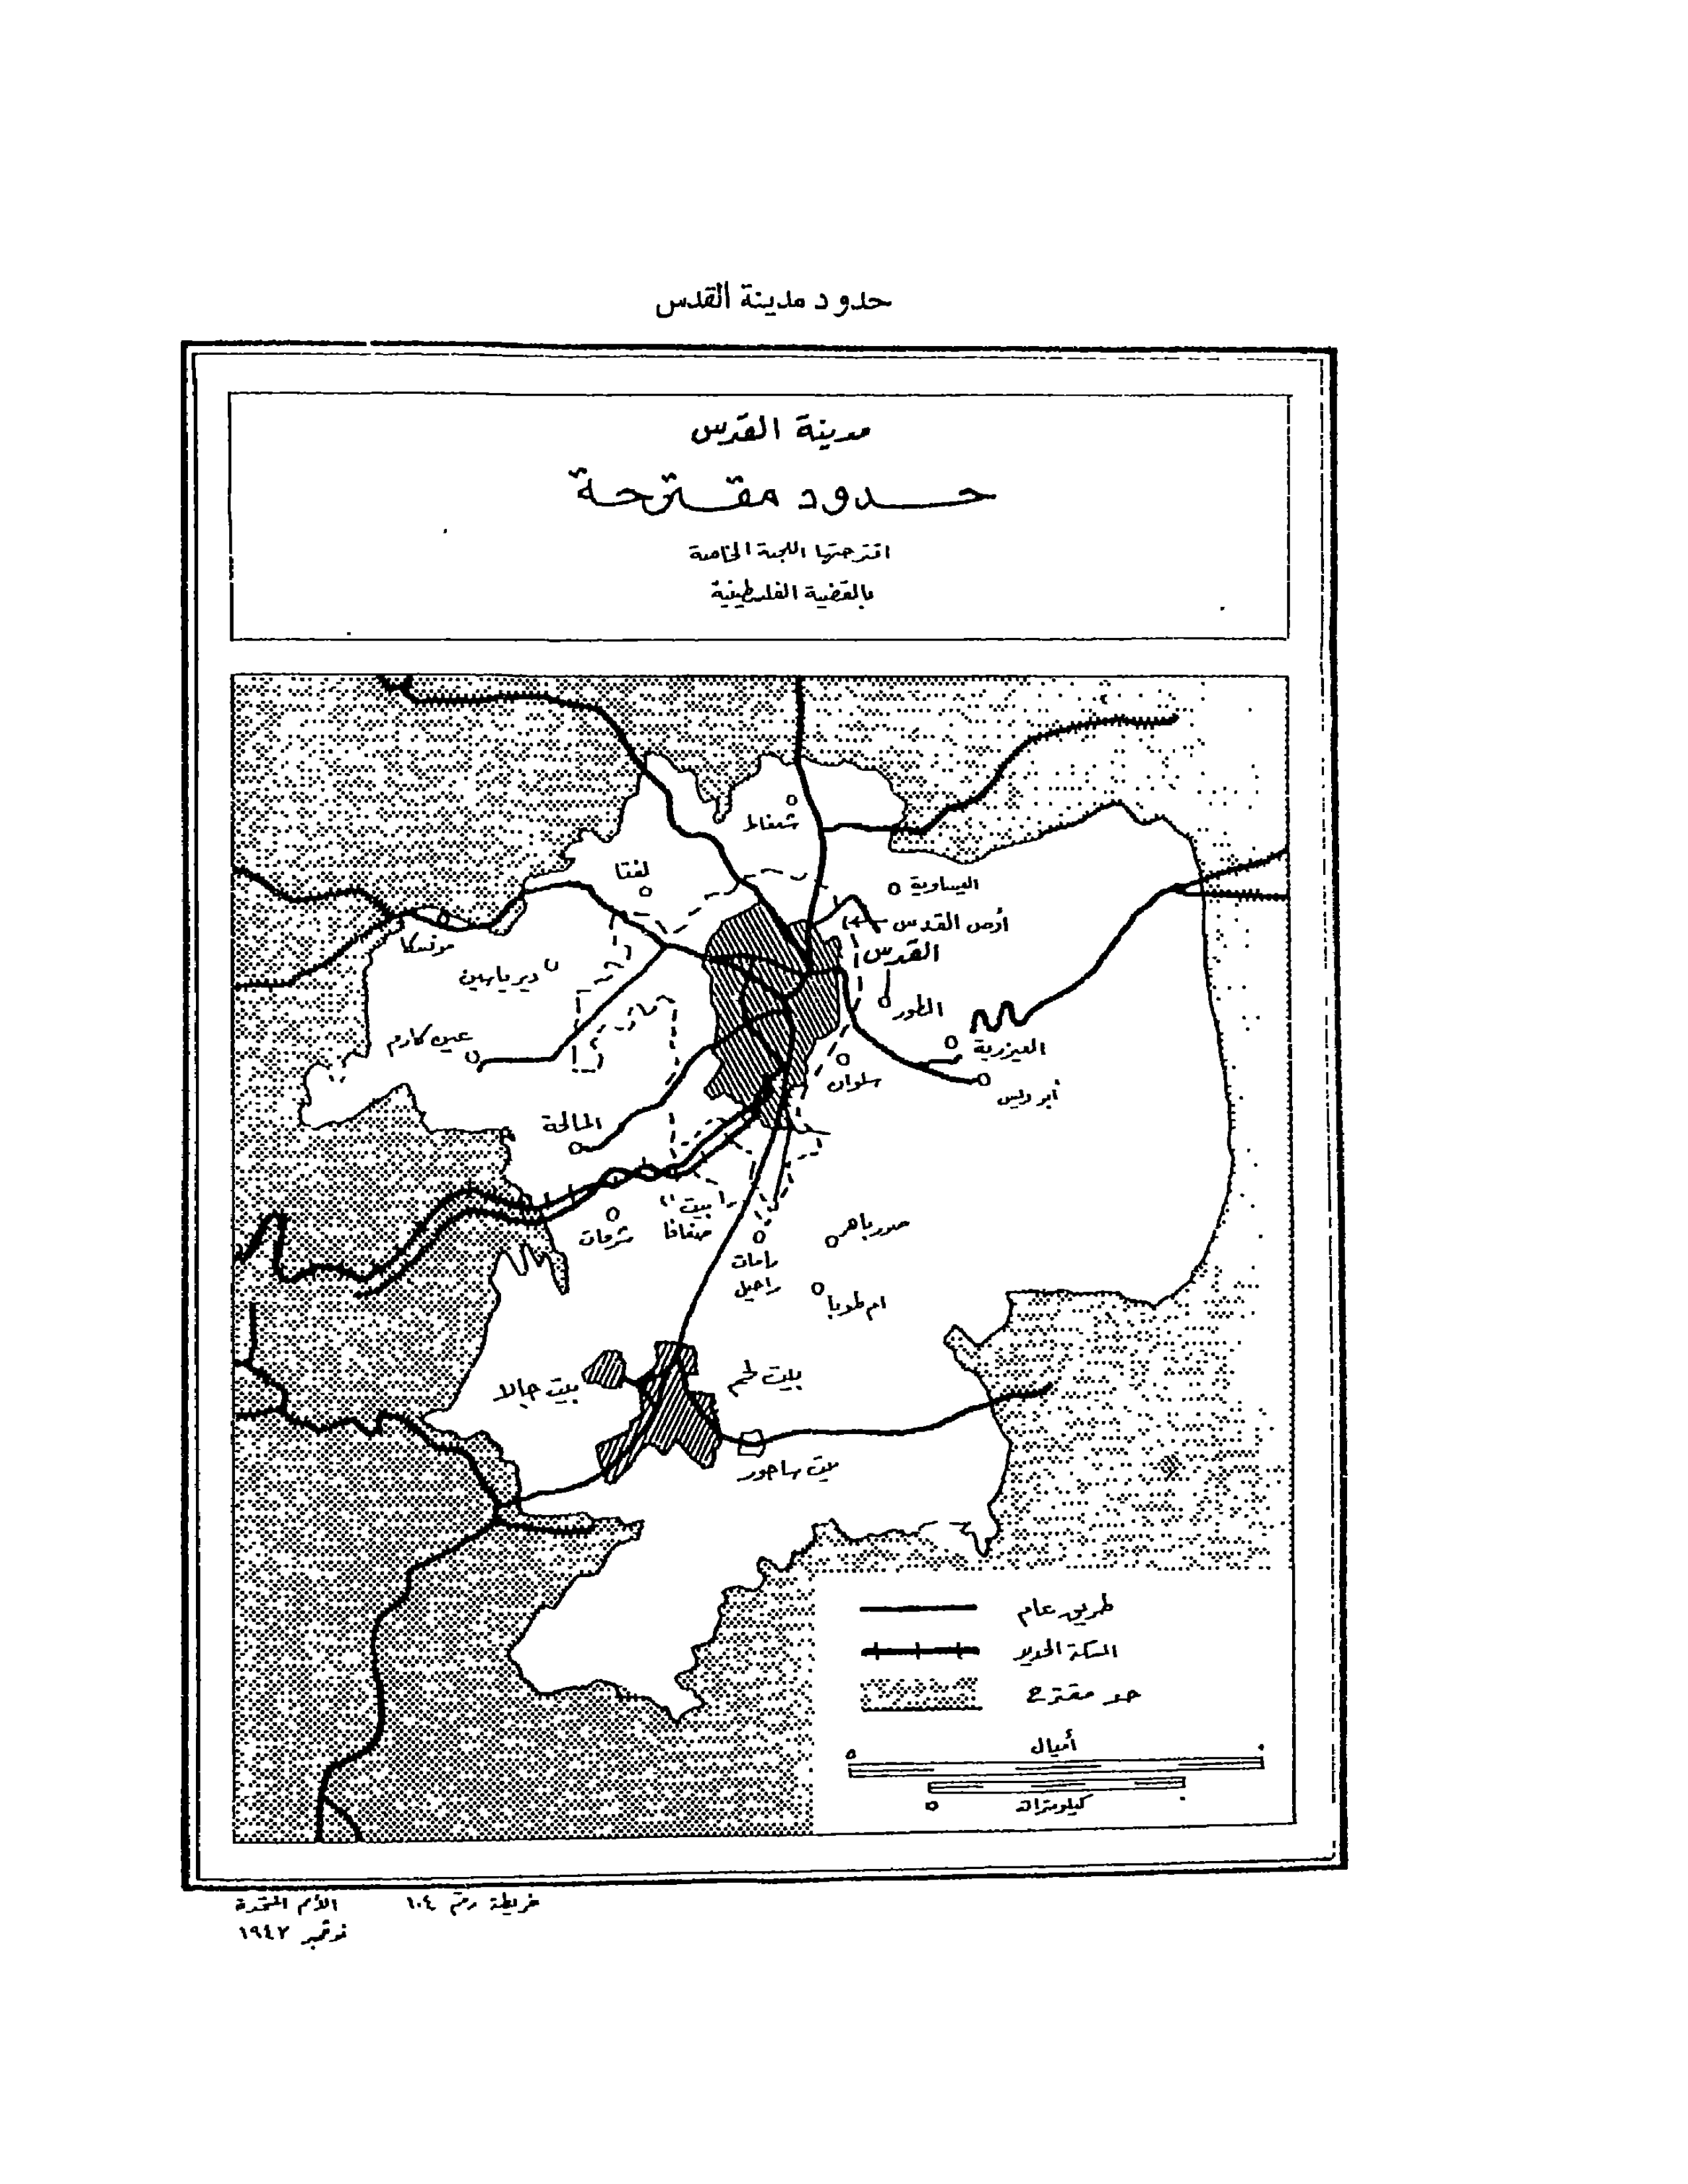 حدود مدينة القدس
مدينة القدس
حدود مقترحة
اقترحتها اللجنة الخاصة
بالقضية الفلسطينية
شعفاط
لفتا
العيساوية
أرض القدس
القدس
موتسكا
دير ياسين
الطور
عين كارم
العيزرية
سلوان
أبو ديس
المالحة
بيت
صفافا
شرفات
صور باهر
رامات
راحيل
ام طوبا
بيت لحم
بيت جالا
بيت ساحور
طريق عام
السكة الحديد
حد مقترح
أميال
كيلومترات
خريطة رقم ١٠٤
الأمم المتحدة
نوڤمبر ١٩٤٧